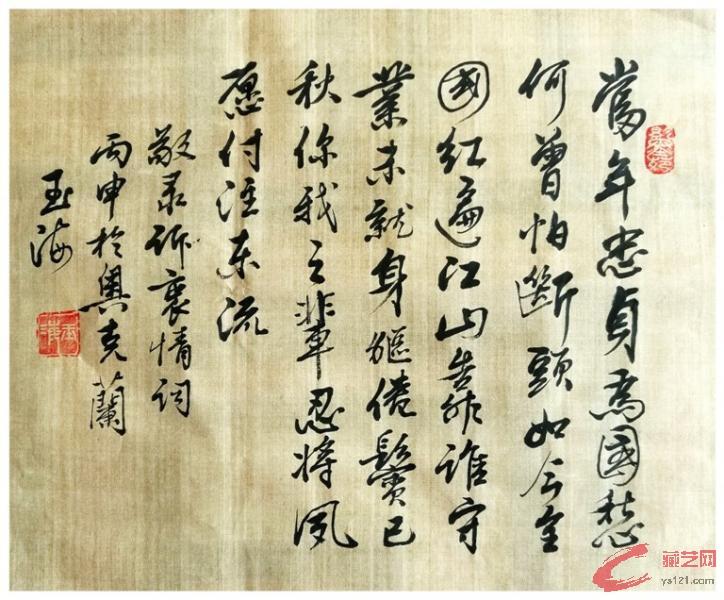 當年忠貞為國愁
何曾怕斷頭如今全
國紅遍江山靠誰守
業未就身軀倦鬢已
秋你我之輩忍將夙
愿付注東流
敬录訴衷情词
丙申於奥克蘭
玉海
藏艺网
ys121.com